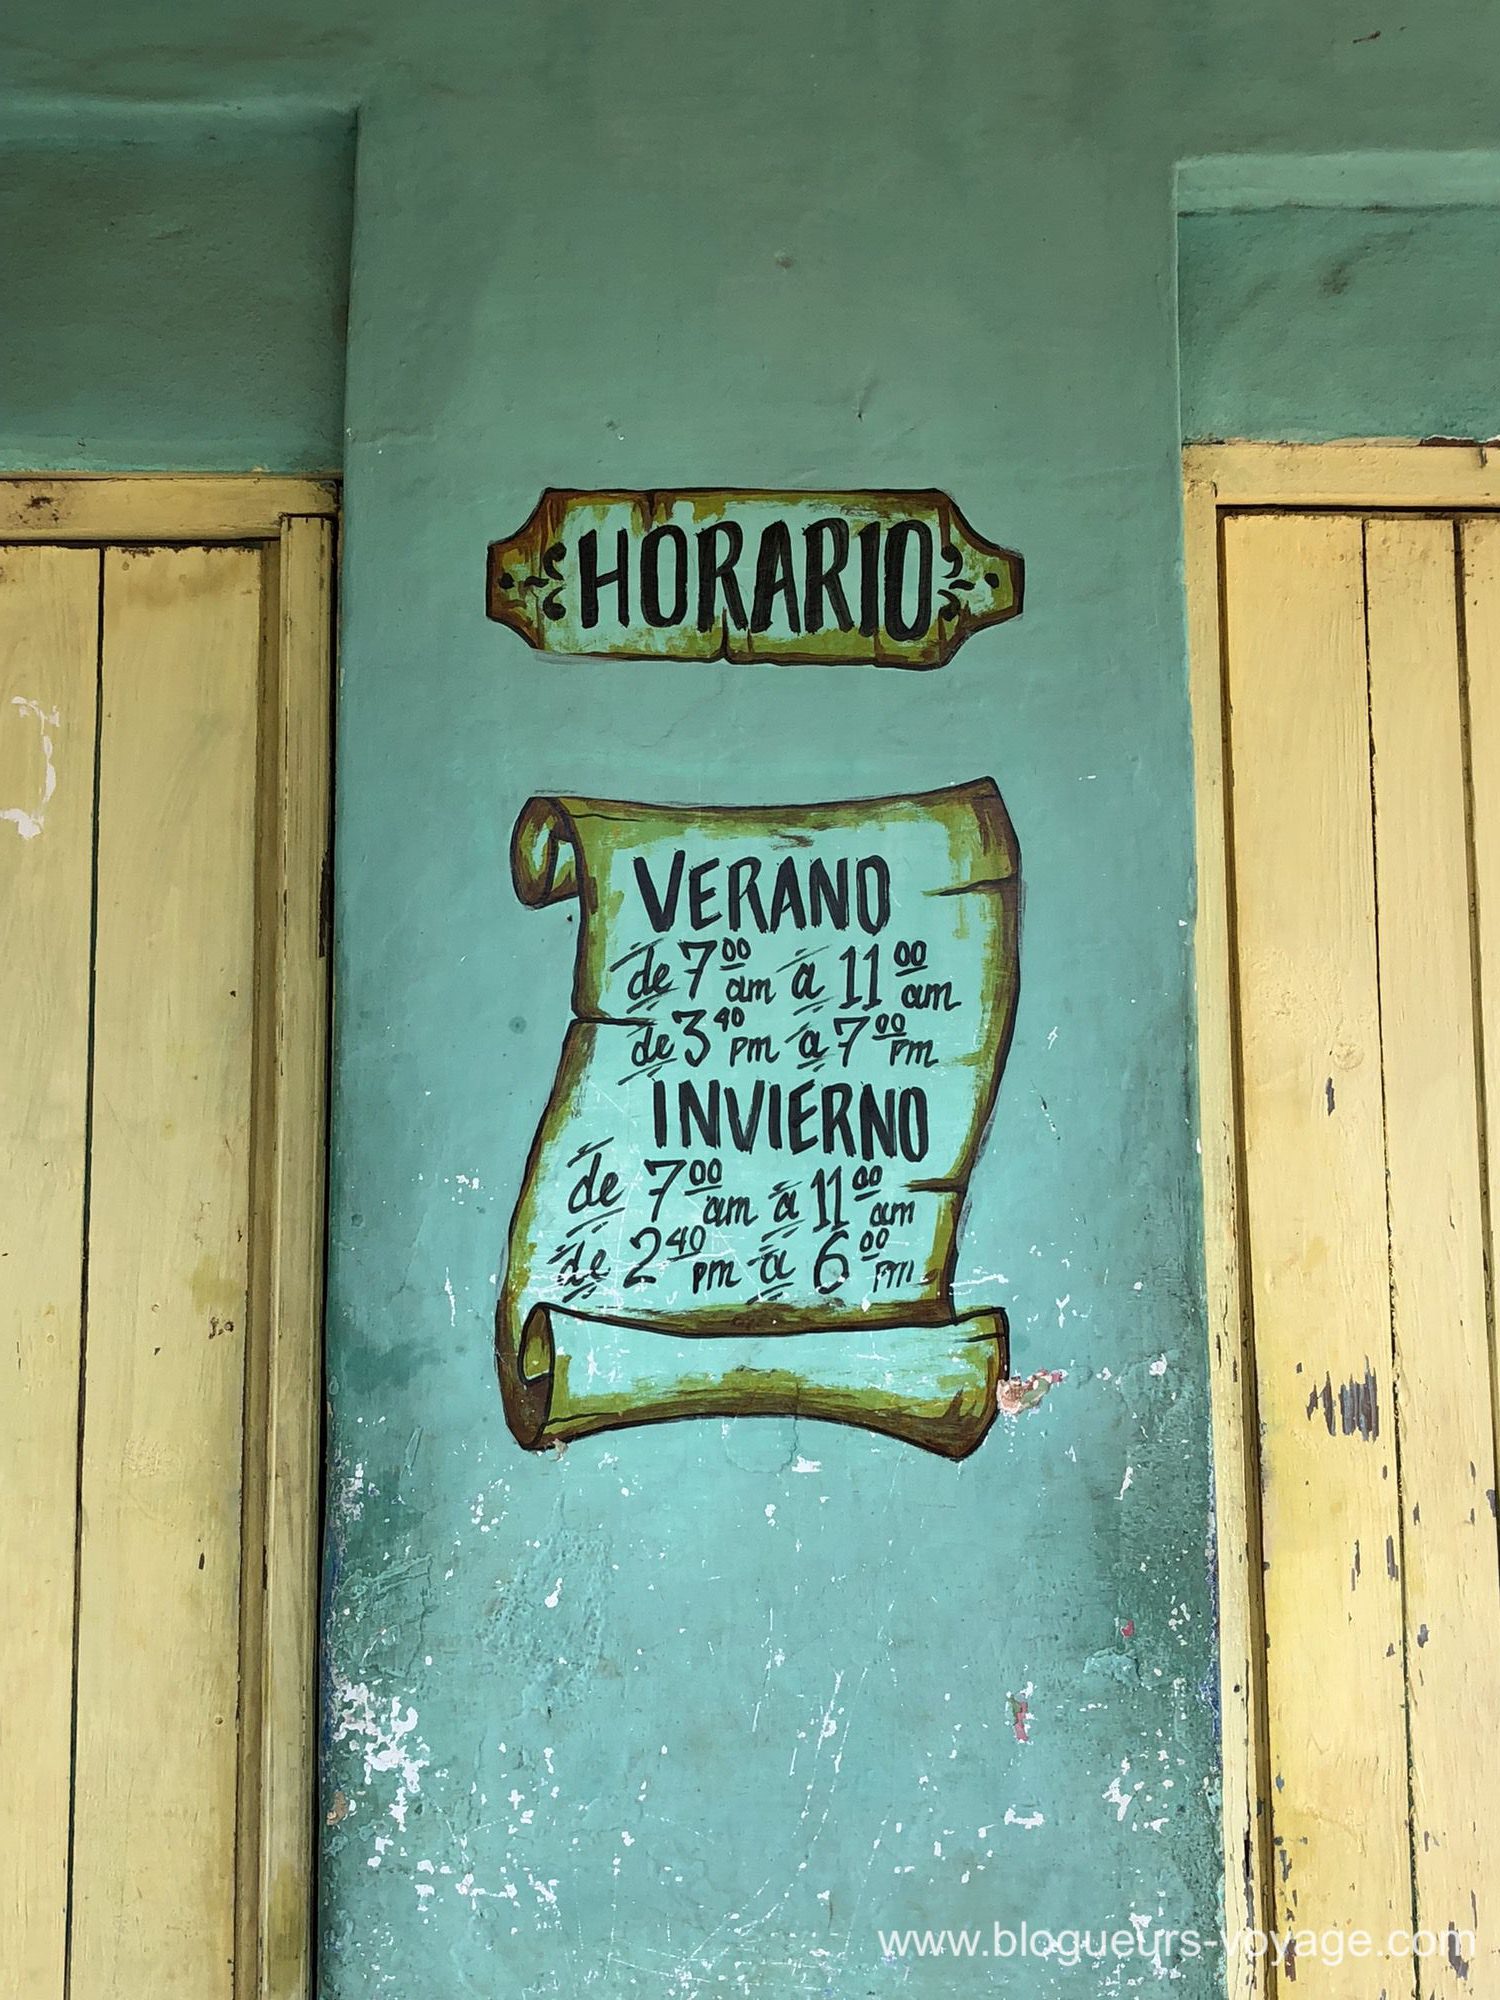 HORARIO
VERANO
de 7 00 am a 11 00 am
de 3 40 pm a 7 00 pm
INVIERNO
de 7 00 am a 11 00 am
de 2 40 pm a 6 00 pm
www.blogueurs-voyage.com